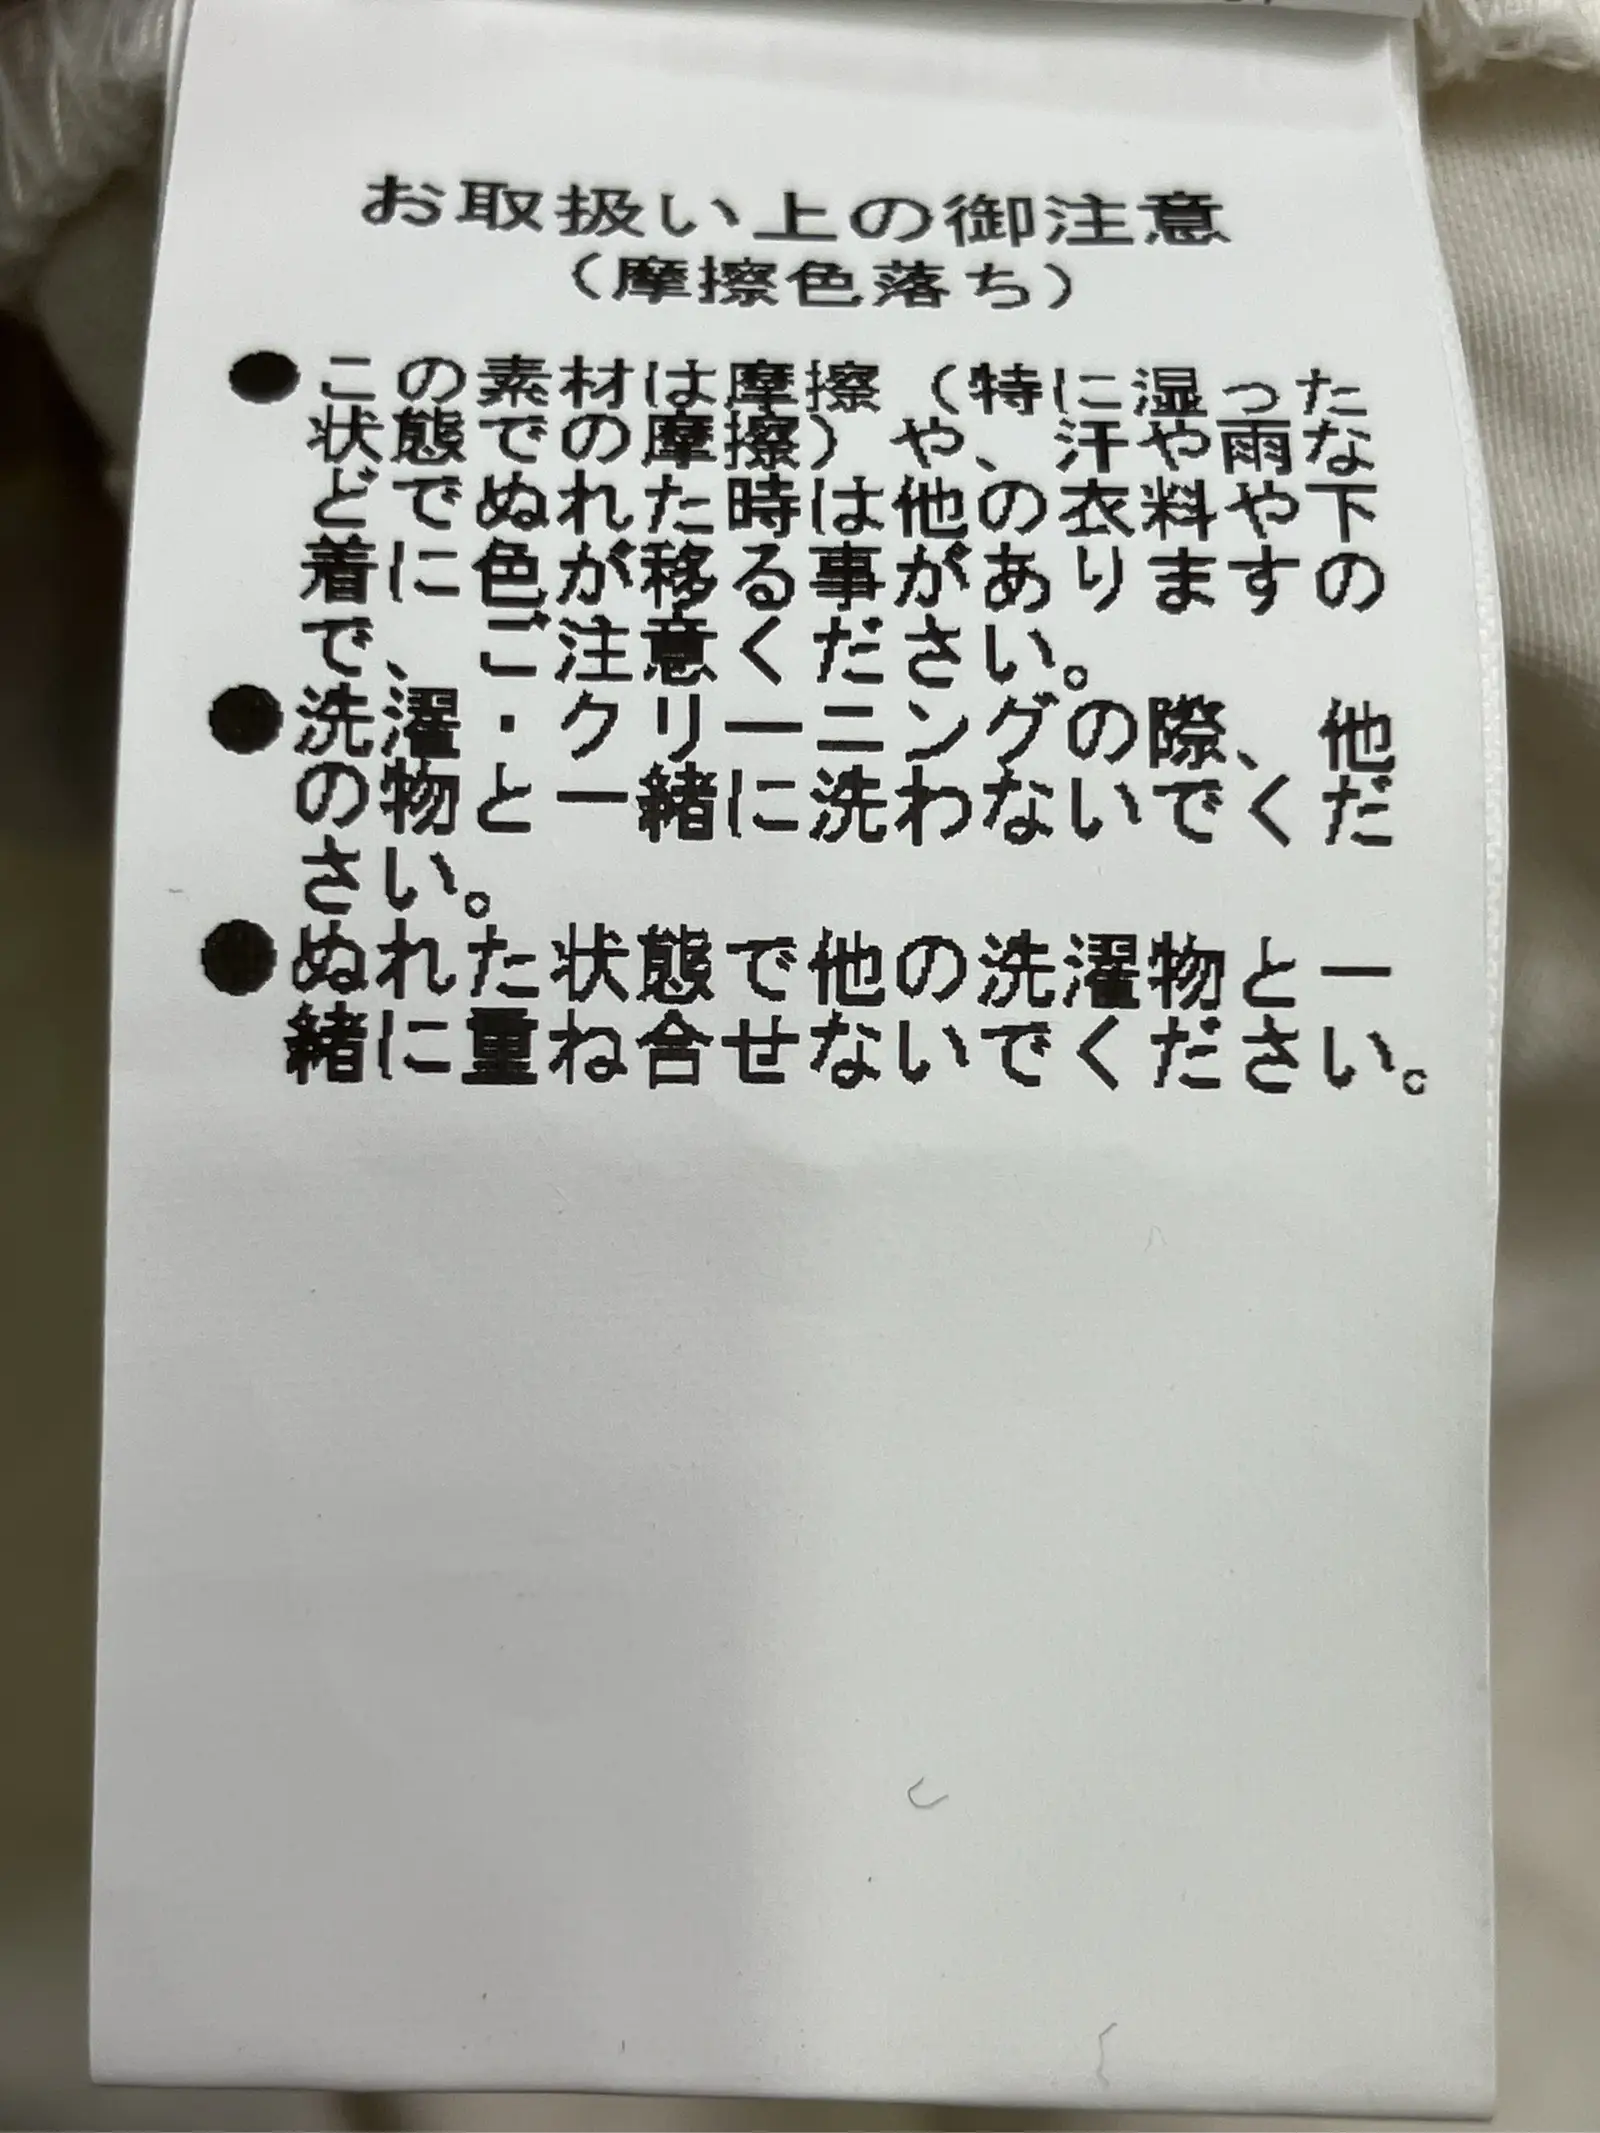 お取扱い上の御注意
（摩擦色落ち）
●この素材は摩擦（特に湿った
状態での摩擦）や、汗や雨な
どでぬれた時は他の衣料や下
着に色が移る事がありますの
で、ご注意ください。
●洗濯・クリーニングの際、他
の物と一緒に洗わないでくだ
さい。
●ぬれた状態で他の洗濯物と一
緒に重ね合せないでください。